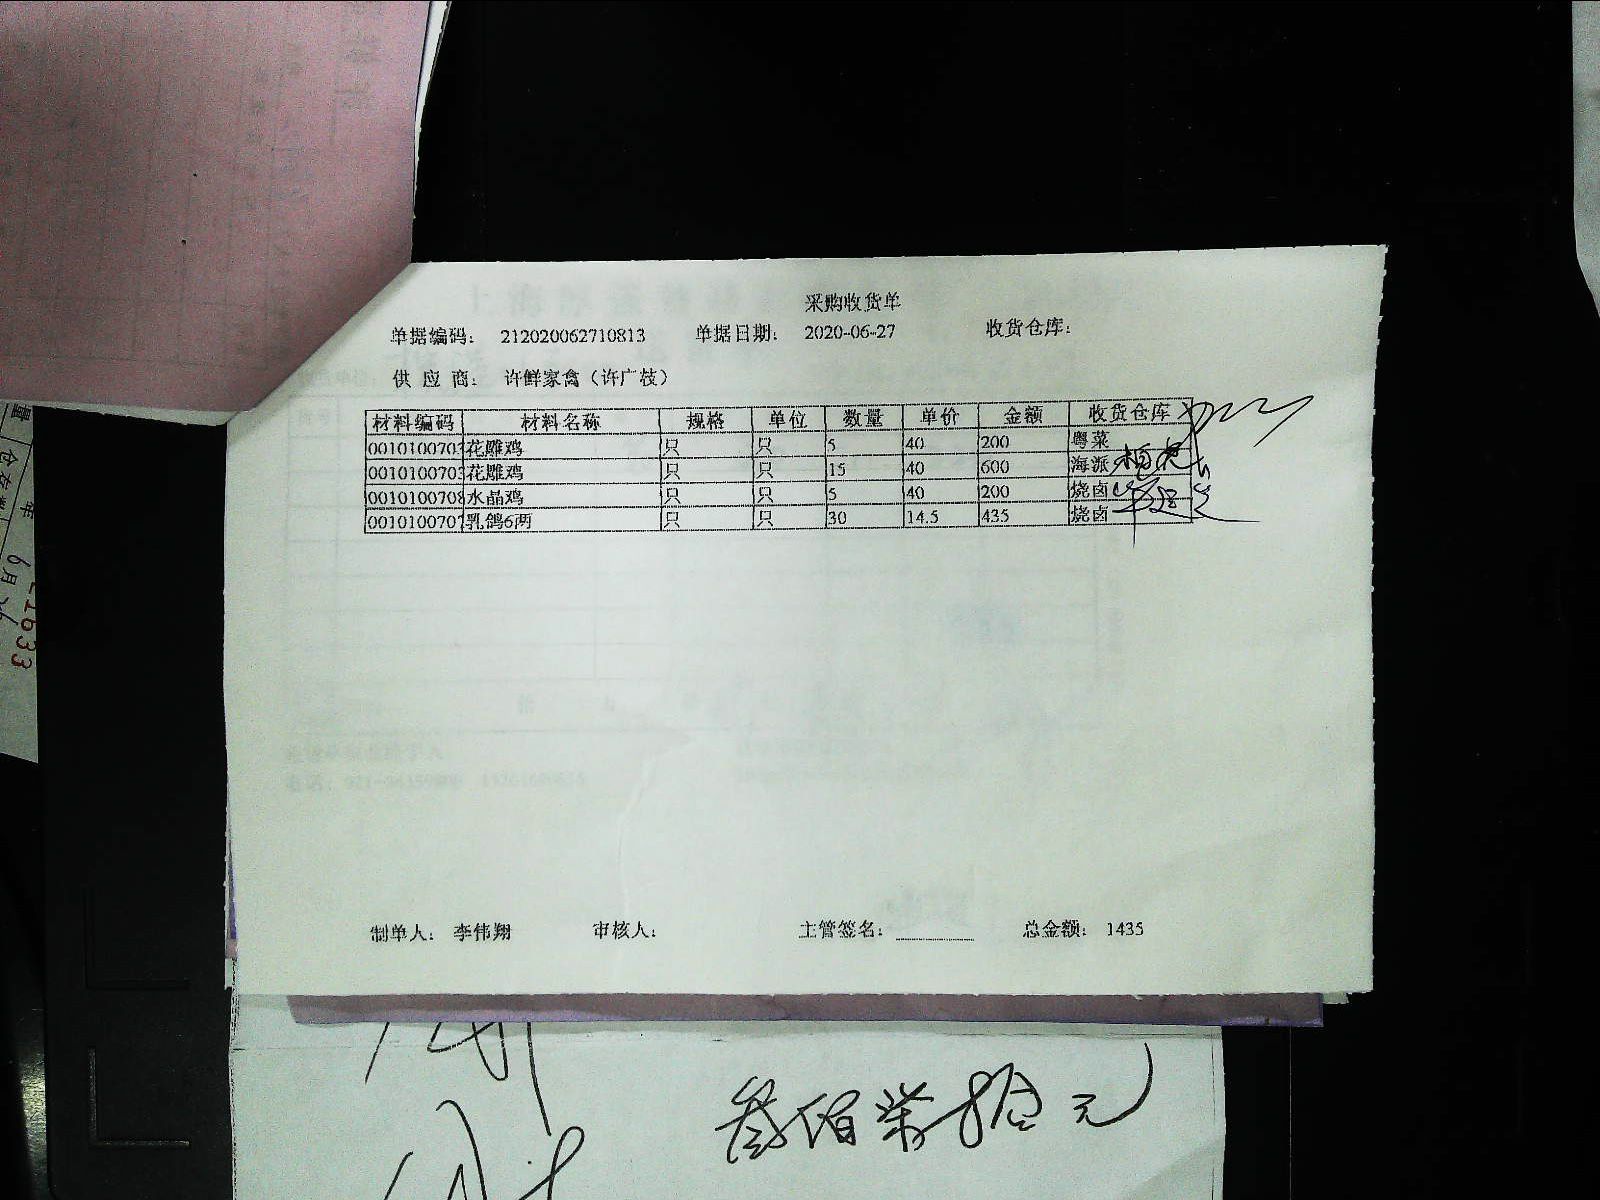 采购收货单
单据编码： 212020062710813 单据日期： 2020-06-27 收货仓库：
供 应 商： 许鲜家禽（许广枝）
材料编码 材料名称 规格 单位 数量 单价 金额 收货仓库
0010100703 花雕鸡 只 只 5 40 200 粤菜
0010100703 花雕鸡 只 只 15 40 600 海派
0010100708 水晶鸡 只 只 5 40 200 烧卤
0010100707 乳鸽6两 只 只 30 14.5 435 烧卤
制单人： 李伟翔 审核人： 主管签名： 总金额： 1435
叁佰柒拾元